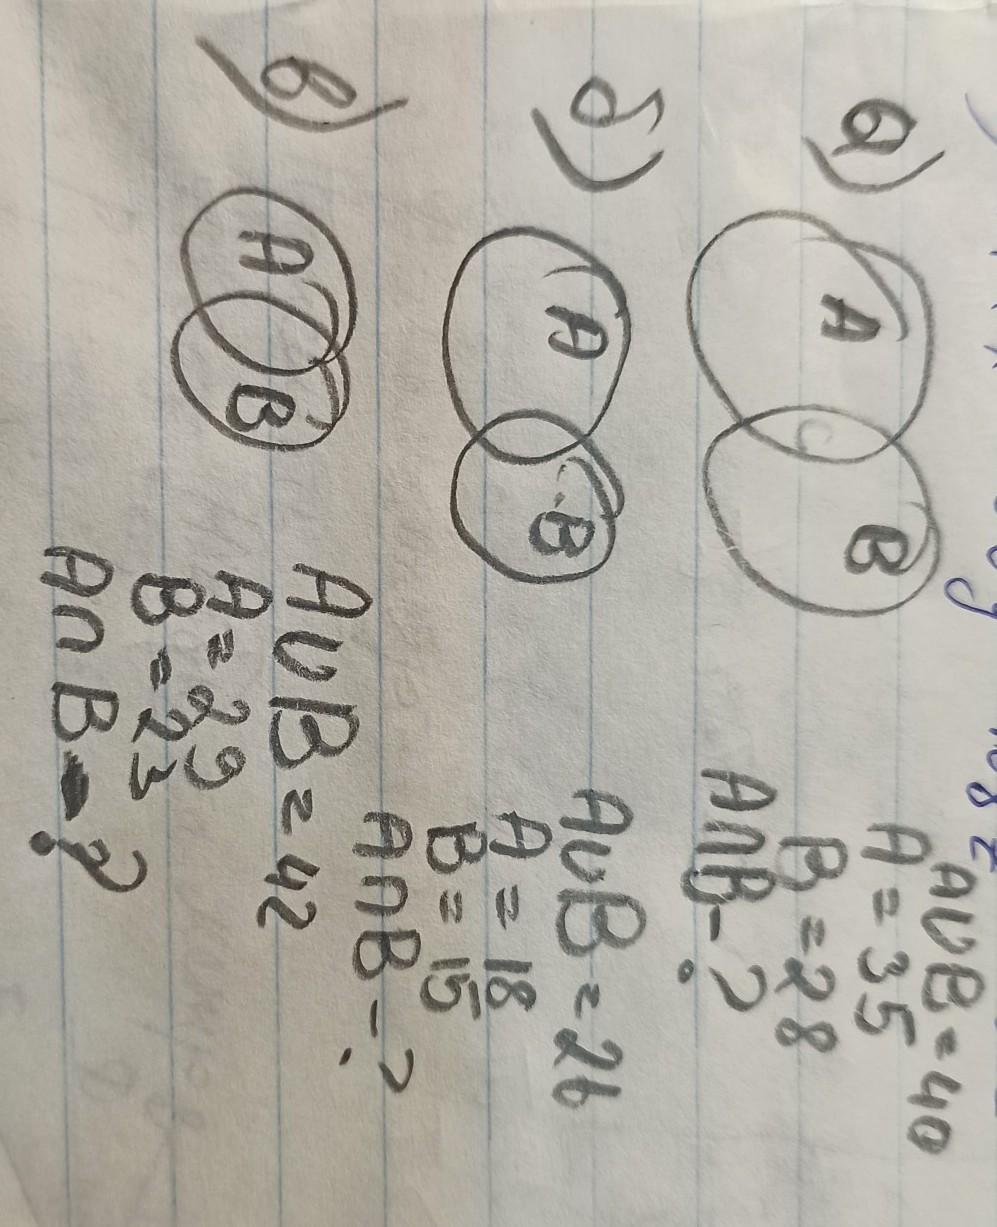 а)
A
B
A∪B = 40
A = 35
B = 28
A∩B - ?
б)
A
B
A∪B = 26
A = 18
B = 15
A∩B - ?
в)
A
B
A∪B = 42
A = 29
B = 23
A∩B - ?